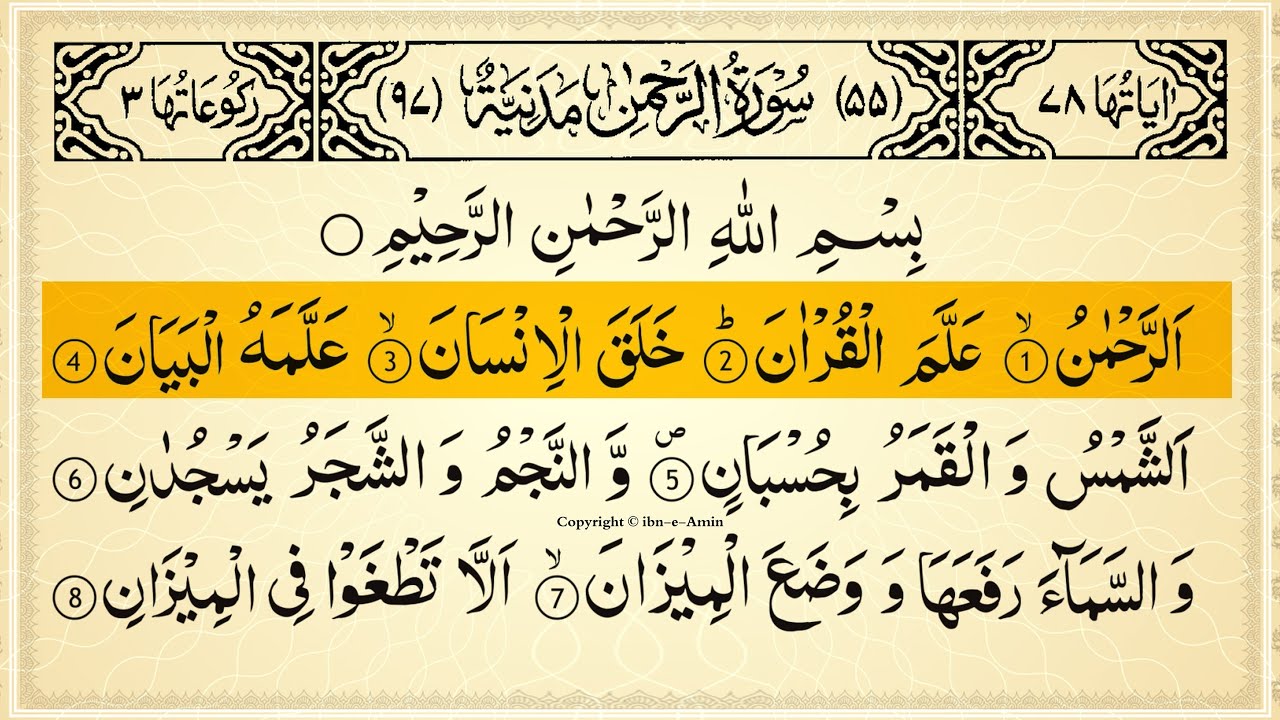 اٰيَاتُهَا ٧٨ (٥٥) سُوْرَةُ الرَّحْمٰنِ مَدَنِيَّةٌ (٩٧) رَكُوْعَاتُهَا ٣
بِسْمِ اللّٰهِ الرَّحْمٰنِ الرَّحِيْمِ ○
اَلرَّحْمٰنُ ۙ① عَلَّمَ الْقُرْاٰنَ ؕ② خَلَقَ الْاِنْسَانَ ۙ③ عَلَّمَهُ الْبَيَانَ ④
اَلشَّمْسُ وَ الْقَمَرُ بِحُسْبَانٍ ۪⑤ وَّ النَّجْمُ وَ الشَّجَرُ يَسْجُدٰنِ ⑥
Copyright © ibn-e-Amin
وَ السَّمَآءَ رَفَعَهَا وَ وَضَعَ الْمِيْزَانَ ۙ⑦ اَلَّا تَطْغَوْا فِى الْمِيْزَانِ ⑧